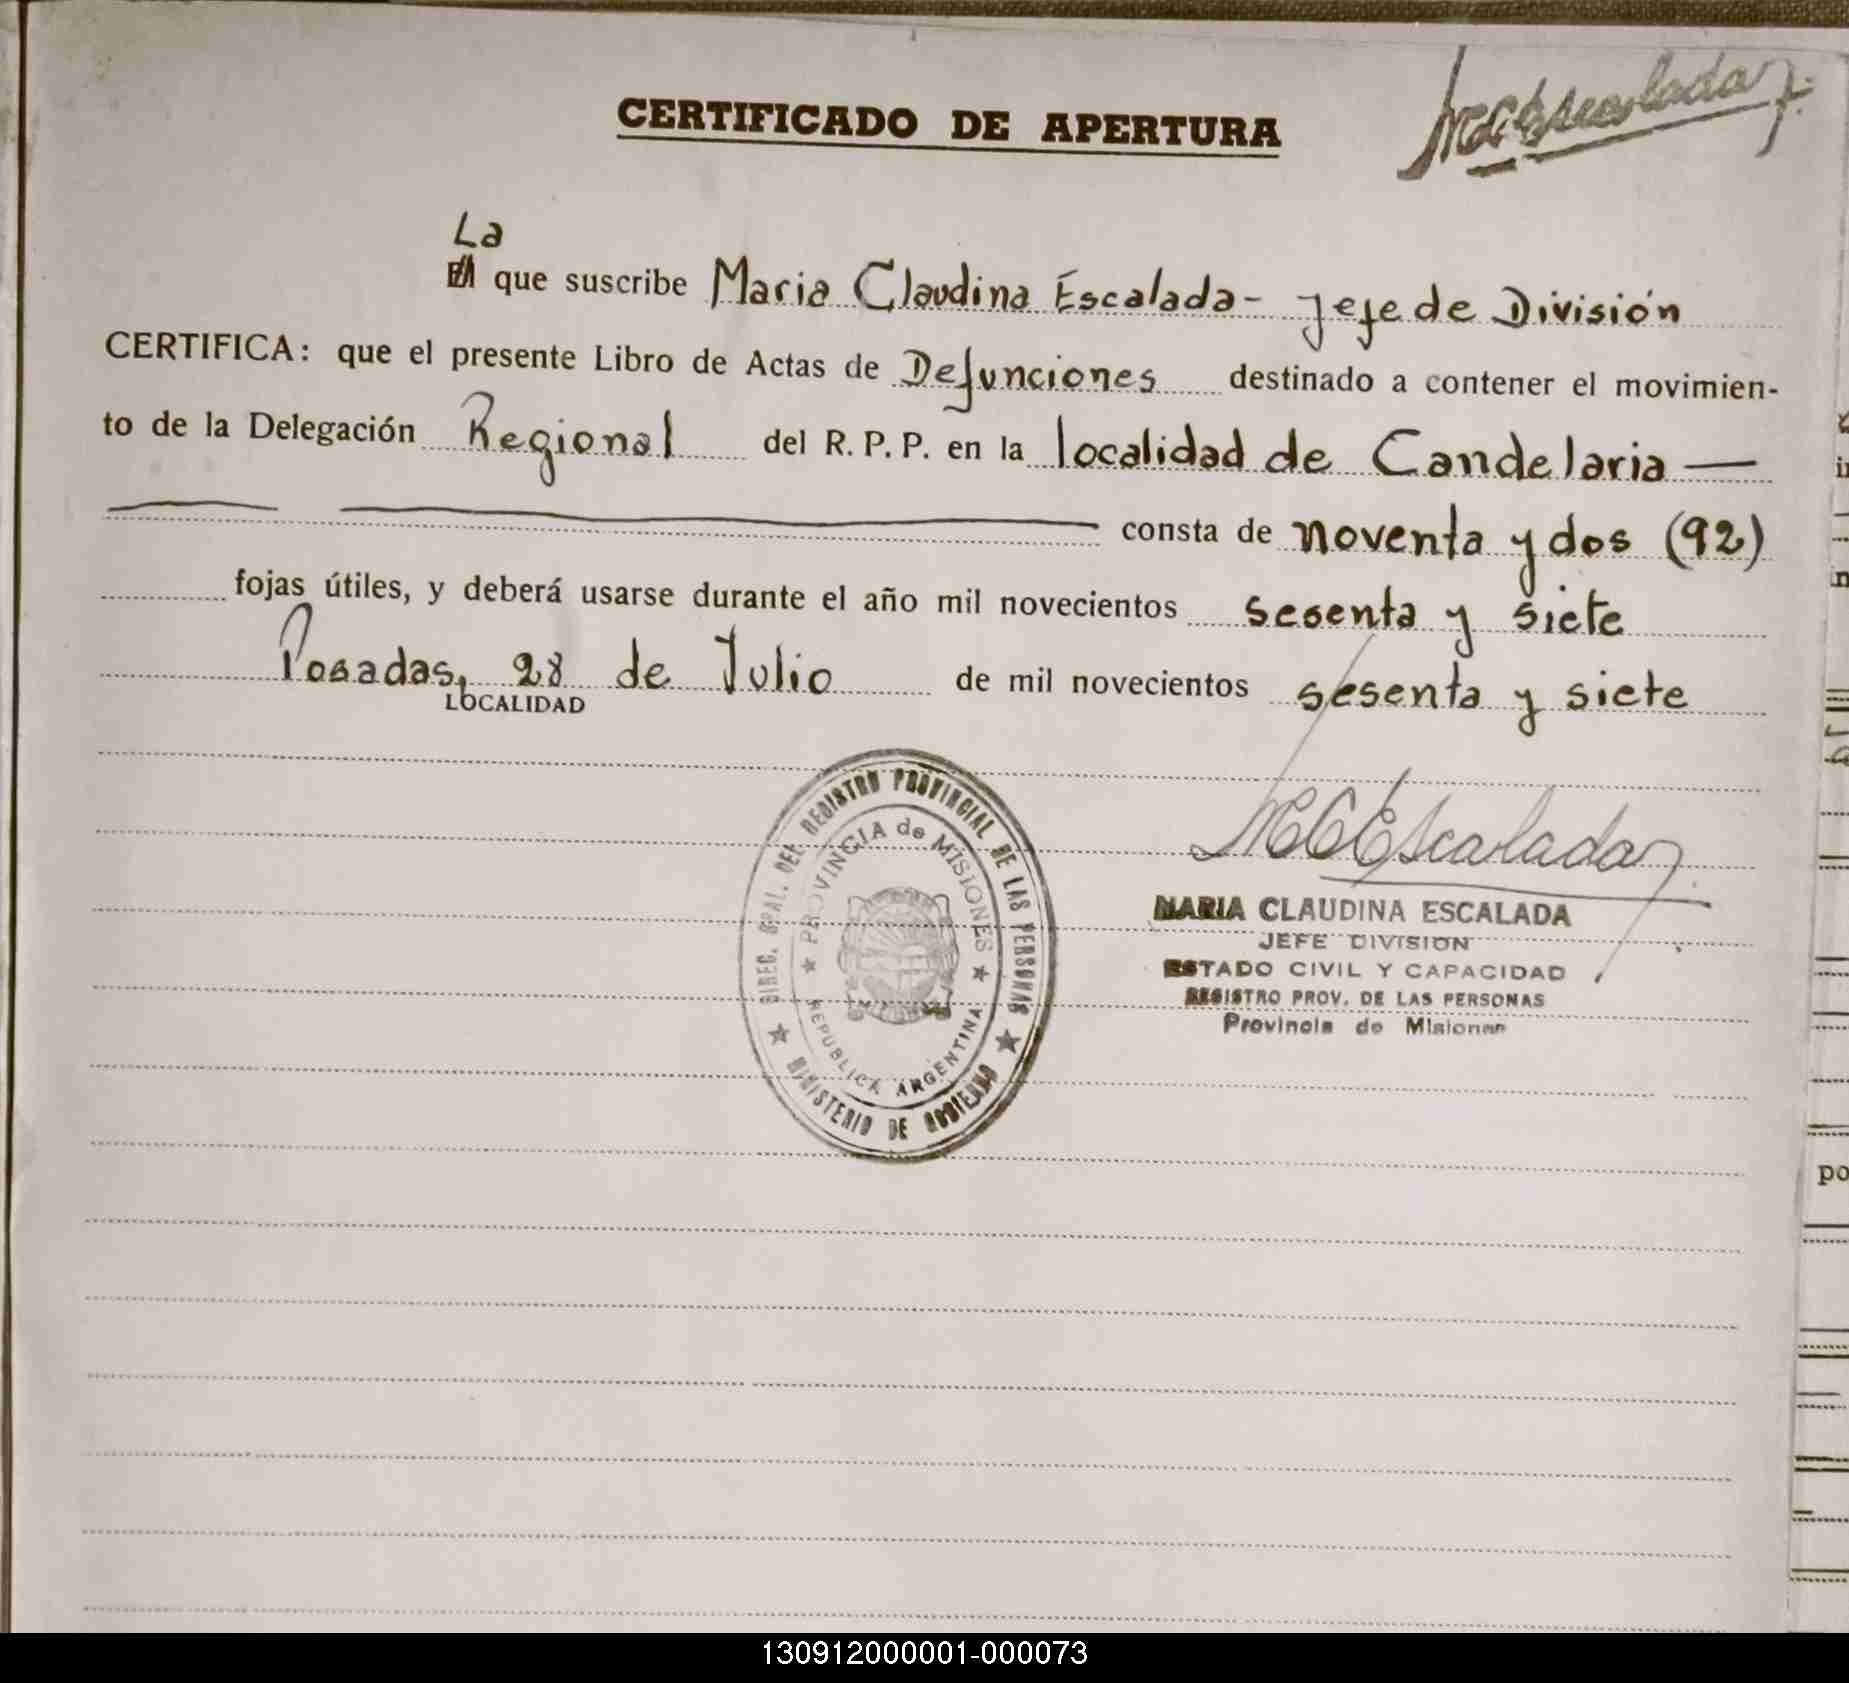 MCEscalada
CERTIFICADO DE APERTURA
La
El que suscribe Maria Claudina Escalada - Jefe de División
CERTIFICA: que el presente Libro de Actas de Defunciones destinado a contener el movimien-
to de la Delegación Regional del R. P. P. en la localidad de Candelaria —
consta de noventa y dos (92)
fojas útiles, y deberá usarse durante el año mil novecientos sesenta y siete
Posadas, 28 de Julio de mil novecientos sesenta y siete
LOCALIDAD
DIREC. GRAL. DEL REGISTRO PROVINCIAL DE LAS PERSONAS
PROVINCIA de MISIONES
REPUBLICA ARGENTINA
MINISTERIO DE GOBIERNO
MCEscalada
MARIA CLAUDINA ESCALADA
JEFE DIVISION
ESTADO CIVIL Y CAPACIDAD
REGISTRO PROV. DE LAS PERSONAS
Provincia de Misiones
po
130912000001-000073